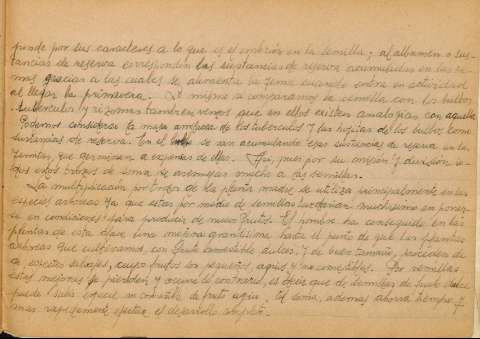 ponde por sus caracteres a lo que es el embrión en la semilla; al albumen o sus-
tancias de reserva corresponden las sustancias de reserva acumuladas en las ra-
mas gracias a las cuales se alimenta la yema cuando entra en actividad
al llegar la primavera. Lo mismo si comparamos la semilla con los bulbos,
tuberculos y rizomas tambien vemos que en ellos existen analogias con aquella.
Podemos considerar la masa amilácea de los tuberculos y las hojitas de los bulbos como
sustancias de reserva. En el se van acumulando esas sustancias de reserva en la
yemitas, que germinan a expensas de ellas. Asi, pues por su origen y división
estos trozos de rama se asemejan mucho a las semillas.
La multiplicación por trozos de la planta madre se utiliza principalmente en las
especies arboreas ya que estas por medio de semillas tardarian muchisimo en poner-
se en condiciones para producir de nuevo frutos. El hombre ha conseguido en las
plantas de esta clase una mejora grandisima hasta el punto de que las plantas
arboreas que cultivamos con fruto comestible dulces y de buen tamaño, proceden de
de especies salvajes, cuyos frutos son pequeños, agrios y no comestibles. Por semillas
estas mejoras se pierden y ocurre lo contrario, es decir que de semillas de fruto dulce
puede salir especie no comestible de fruto agrio. El rama, ademas ahorra tiempo y
mas rapidamente efectua el desarrollo completo.